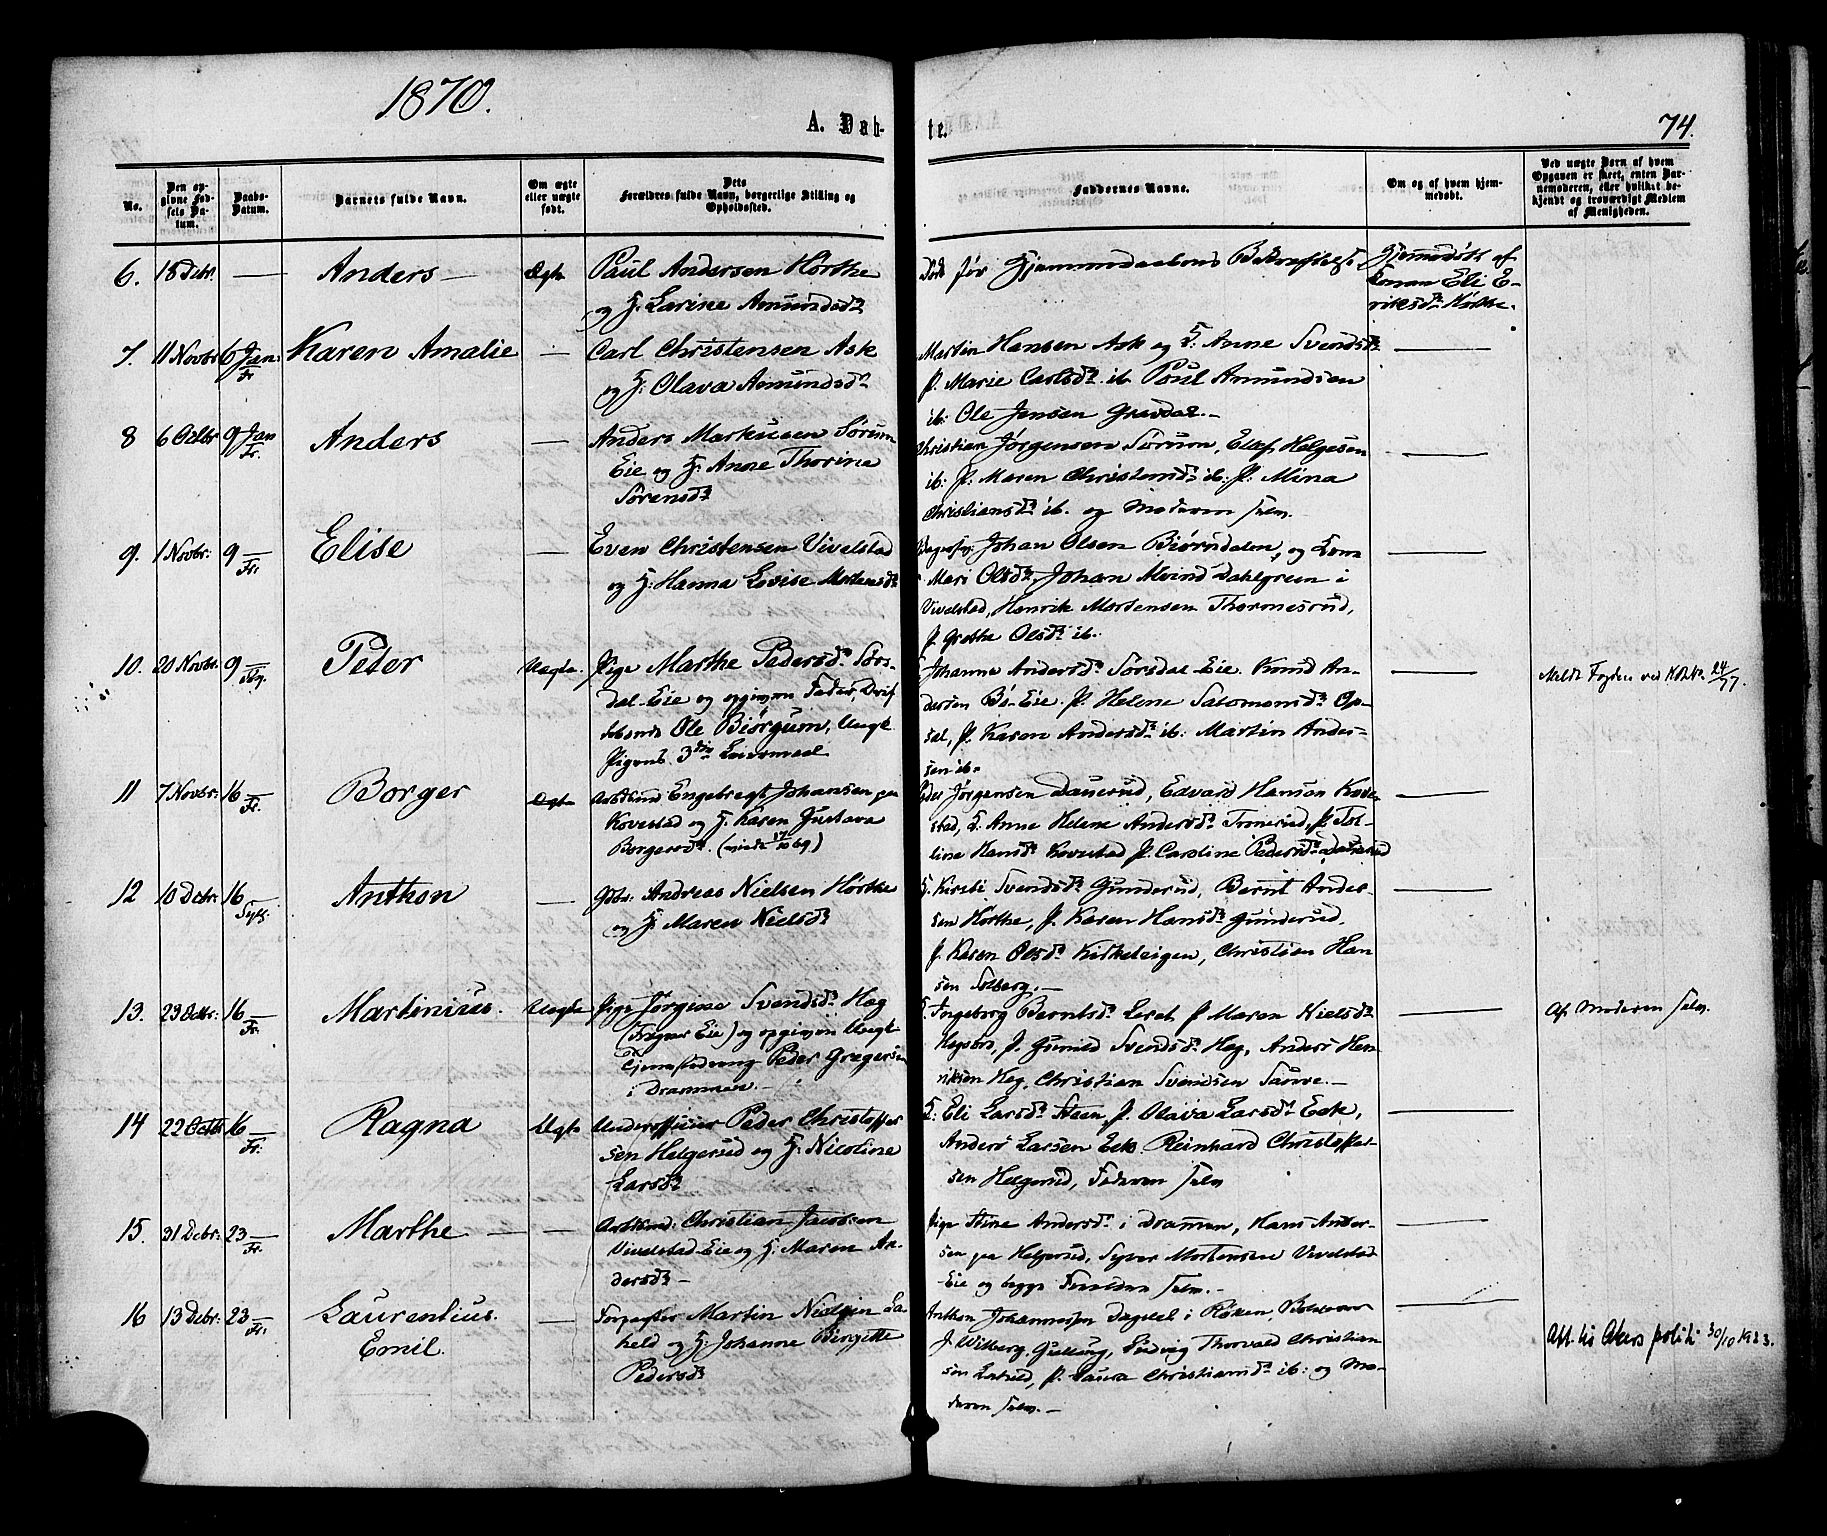 1870.
A. Døb-
te.
74.
No.
Den op-
givne Fød-
sels Da-
tum.
Daabs-
Datum.
Barnets fulde Navn.
Om ægte
eller uægte
født.
Dets
Forældres fulde Navn, borgerlige Stilling og
Opholdssted.
Faddernes Navne.
Om og af hvem hjem-
medøbt.
Ved uægte Børn af hvem
Opgaven er skeet, enten Bar-
nemoderen, eller hvilket be-
kjendt og troværdigt Medlem
af Menigheden.
6. 18 Debr. — Anders — Ægte Paul Andersen Hörthe
og H. Larine Amundsdr
Död før Hjemmedaabens Bekræftelse
Hjemmedöbt af
Konan Eli E-
riksdr Hörthe.
7. 11 Novbr 6 Jan Fr. Karen Amalie — Carl Christensen Ask
og H. Olava Amundsdr
Martin Hansen Ask og K. Anne Svendsdr
P. Marie Carlsdr ib. Poul Amundsen
ib: Ole Jensen Gravdal. —
8 6 Octbr 9 Jan Fr. Anders — Anders Markusen Sörum
Eie og H. Anne Thorine
Sörensdr
Christian Jørgensen Sörum, Ellef Helgesen
ib: P. Maren Christensdr ib: P. Mina
Christiansdr ib. og Moderen selv.
9. 1 Novbr: 9 Fr. Elise — Even Christensen Vivelstad
og H. Hanna Lovise Mortensdr
Johan Olsen Biørndalen, og Kone
Mari Olsdr, Johan Dahlgreen i
Vivelstad, Henrik Mortensen Thormesrud,
P. Grethe Olsdr ib.
10. 20 Novbr. 9 Peter Uægte. Pige Marthe Pedersdr Sørs-
dal-Eie og opgiven Fader,
Ole Biörgum, Ungk
Pigens 3die Leiermaal
Johanne Andersdr Sørsdal-Eie. Knud An-
dersen Bö-Eie. P. Helene Salomonsdr Op-
sal, P. Karen Andersdr ib: Martin Ander-
sen ib.
Meldt Fogden 24/1
11 7 Novbr: 16 Fr. Borger Ægte Engebregt Johansen paa
Kovestad og H. Karen Gustava
Borgersdr. (viede 17/10 69)
Peder Jørgensen Dauerud, Edvard Hansen Kove-
stad, K. Anne Helene Andersdr Tronerud, P.
line Hansdr Kovestad P. Caroline Pedersdr Dauerud
12 10 Debr: 16 Anthon — Gdbr: Andreas Nielsen Hörthe
og H. Maren Nielsdr
K. Kirsti Svendsdr Gunderud, Bernt Ander-
sen Hörthe, P. Karen Hansdr Gunderud,
P. Karen Olsdr Kirkeleigen, Christian Han
sen Solberg. —
13. 23 16 Fr. Martinius. Uægte Pige Jørgine Svendsdr Hæg
Eie) og opgiven Ungk
Peder Gregersen
i Drammen. —
K. Ingeborg Berntsdr P. Maren Nielsdr
P. Gunild Svendsdr Hæg, Anders Hen-
riksen Hæg, Christian Svendsen —
Af Moderen selv.
14 22 Octbr 16 Fr. Ragna Ægte Underofficier Peder Christoffer
sen Helgerud og H. Nicoline
Larsdr
K: Eli Larsdr Steen, P. Olava Larsdr Eek,
Anders Larsen Eek. Reinhard Christoffer-
sen Helgerud, Faderen selv
15. 31 Debr: 23 Fr. Marthe — — Arbmd: Christian Jacobsen
Vivelstad-Eie og H. Maren An-
dersdr —
Pige Stine Andersdr i Drammen, Hans Ander-
sen paa Helgerud, Syver Mortensen Vivelstad
-Eie og begge Forældre selv. —
16 13 Debr: 23 Fr. Laurentius.
Emil. — Forpagter Martin Nielsen La-
held og H. Johanne Birgitte
Pedersdr
Anthon Johannessen Dagslet i Röken,
J. Wilberg, Gullaug, Ludvig Thorvald Christian
sen P. Laura Christiansdr ib: og Mo-
deren selv. —
Att. til Akers politi 30/10 1923.